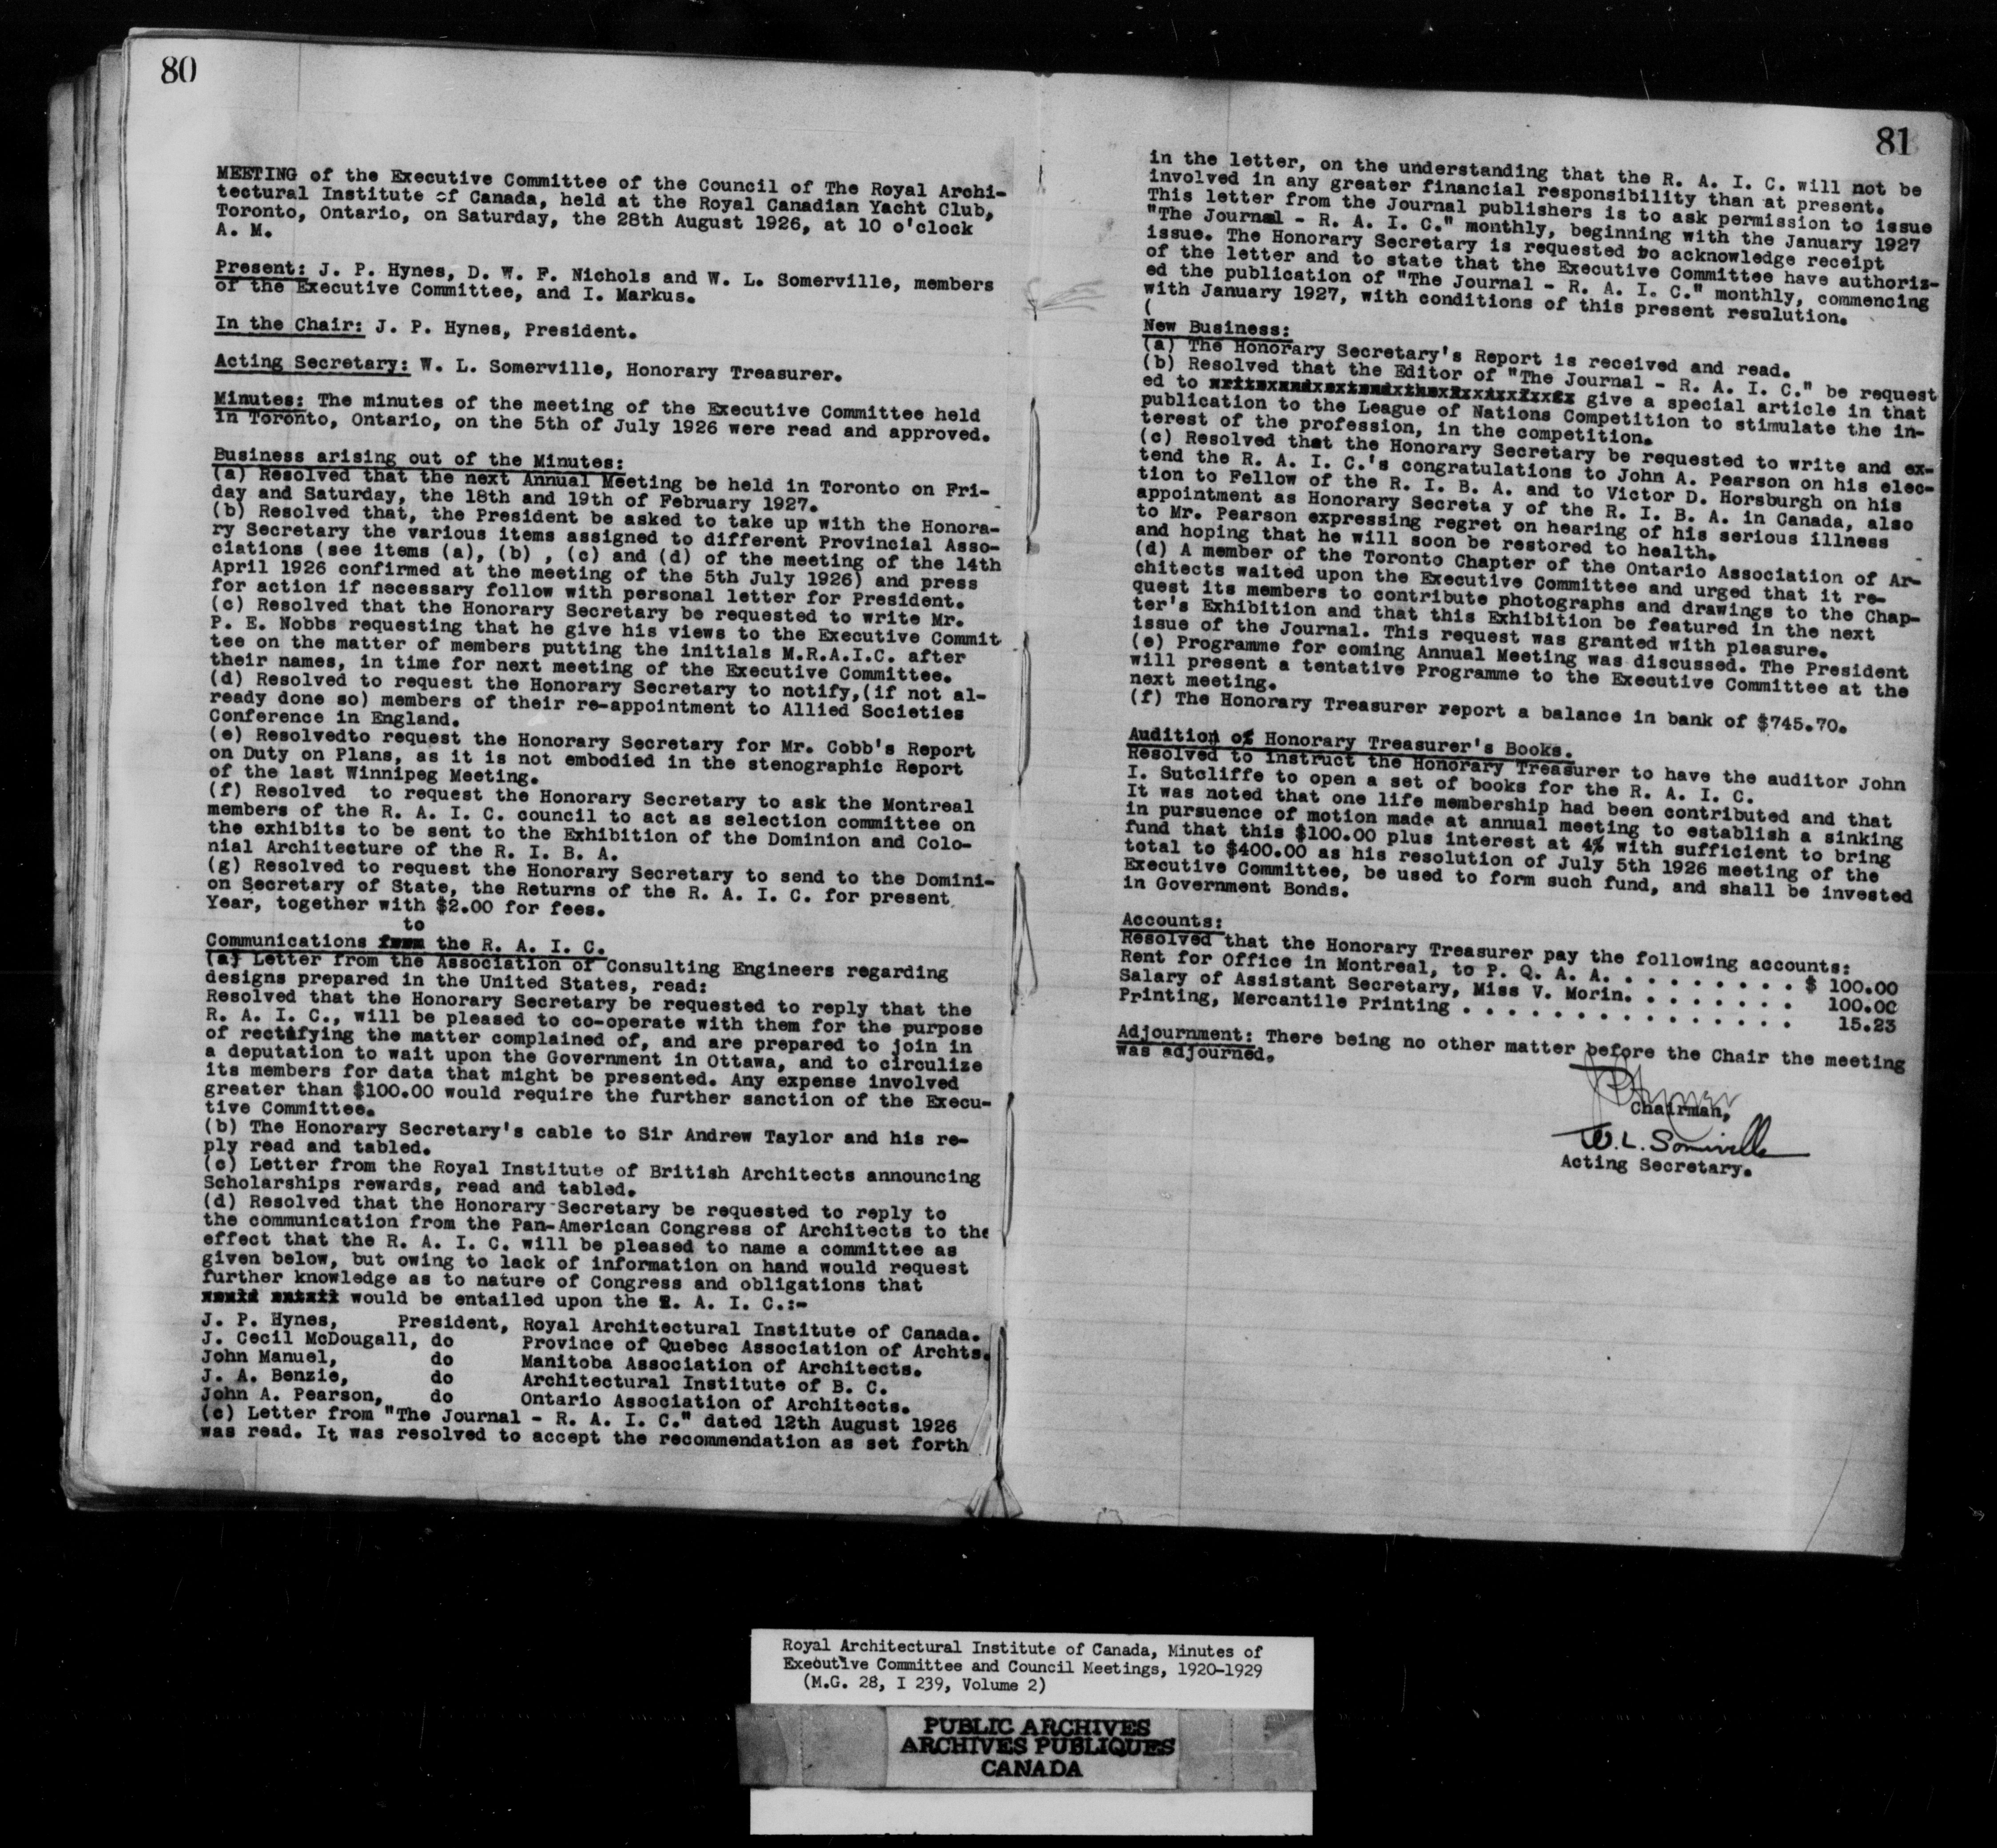 80
MEETING of the Executive Committee of the Council of The Royal Archi-
tectural Institute of Canada, held at the Royal Canadian Yacht Club,
Toronto, Ontario, on Saturday, the 28th August 1926, at 10 o'clock
A. M.
Present: J. P. Hynes, D. W. F. Nichols and W. L. Somerville, members
of the Executive Committee, and I. Markus.
In the Chair: J. P. Hynes, President.
Acting Secretary: W. L. Somerville, Honorary Treasurer.
Minutes: The minutes of the meeting of the Executive Committee held
in Toronto, Ontario, on the 5th of July 1926 were read and approved.
Business arising out of the Minutes:
(a) Resolved that the next Annual Meeting be held in Toronto on Fri-
day and Saturday, the 18th and 19th of February 1927.
(b) Resolved that, the President be asked to take up with the Honora-
ry Secretary the various items assigned to different Provincial Asso-
ciations (see items (a), (b) , (c) and (d) of the meeting of the 14th
April 1926 confirmed at the meeting of the 5th July 1926) and press
for action if necessary follow with personal letter for President.
(c) Resolved that the Honorary Secretary be requested to write Mr.
P. E. Nobbs requesting that he give his views to the Executive Commit
tee on the matter of members putting the initials M.R.A.I.C. after
their names, in time for next meeting of the Executive Committee.
(d) Resolved to request the Honorary Secretary to notify,(if not al-
ready done so) members of their re-appointment to Allied Societies
Conference in England.
(e) Resolvedto request the Honorary Secretary for Mr. Cobb's Report
on Duty on Plans, as it is not embodied in the stenographic Report
of the last Winnipeg Meeting.
(f) Resolved to request the Honorary Secretary to ask the Montreal
members of the R. A. I. C. council to act as selection committee on
the exhibits to be sent to the Exhibition of the Dominion and Colo-
nial Architecture of the R. I. B. A.
(g) Resolved to request the Honorary Secretary to send to the Domini-
on Secretary of State, the Returns of the R. A. I. C. for present
Year, together with $2.00 for fees.
to
Communications from the R. A. I. C.
(a) Letter from the Association of Consulting Engineers regarding
designs prepared in the United States, read:
Resolved that the Honorary Secretary be requested to reply that the
R. A. I. C., will be pleased to co-operate with them for the purpose
of rectifying the matter complained of, and are prepared to join in
a deputation to wait upon the Government in Ottawa, and to circulize
its members for data that might be presented. Any expense involved
greater than $100.00 would require the further sanction of the Execu-
tive Committee.
(b) The Honorary Secretary's cable to Sir Andrew Taylor and his re-
ply read and tabled.
(c) Letter from the Royal Institute of British Architects announcing
Scholarships rewards, read and tabled.
(d) Resolved that the Honorary Secretary be requested to reply to
the communication from the Pan-American Congress of Architects to the
effect that the R. A. I. C. will be pleased to name a committee as
given below, but owing to lack of information on hand would request
further knowledge as to nature of Congress and obligations that
would entail would be entailed upon the R. A. I. C.:-
J. P. Hynes, President, Royal Architectural Institute of Canada.
J. Cecil McDougall, do Province of Quebec Association of Archts.
John Manuel, do Manitoba Association of Architects.
J. A. Benzie, do Architectural Institute of B. C.
John A. Pearson, do Ontario Association of Architects.
(e) Letter from "The Journal - R. A. I. C." dated 12th August 1926
was read. It was resolved to accept the recommendation as set forth
81
in the letter, on the understanding that the R. A. I. C. will not be
involved in any greater financial responsibility than at present.
This letter from the Journal publishers is to ask permission to issue
"The Journal - R. A. I. C." monthly, beginning with the January 1927
issue. The Honorary Secretary is requested to acknowledge receipt
of the letter and to state that the Executive Committee have authoriz-
ed the publication of "The Journal - R. A. I. C." monthly, commencing
with January 1927, with conditions of this present resulution.
(
New Business:
(a) The Honorary Secretary's Report is received and read.
(b) Resolved that the Editor of "The Journal - R. A. I. C." be request
ed to give a special article in that
publication to the League of Nations Competition to stimulate the in-
terest of the profession, in the competition.
(c) Resolved that the Honorary Secretary be requested to write and ex-
tend the R. A. I. C.'s congratulations to John A. Pearson on his elec-
tion to Fellow of the R. I. B. A. and to Victor D. Horsburgh on his
appointment as Honorary Secreta y of the R. I. B. A. in Canada, also
to Mr. Pearson expressing regret on hearing of his serious illness
and hoping that he will soon be restored to health.
(d) A member of the Toronto Chapter of the Ontario Association of Ar-
chitects waited upon the Executive Committee and urged that it re-
quest its members to contribute photographs and drawings to the Chap-
ter's Exhibition and that this Exhibition be featured in the next
issue of the Journal. This request was granted with pleasure.
(e) Programme for coming Annual Meeting was discussed. The President
will present a tentative Programme to the Executive Committee at the
next meeting.
(f) The Honorary Treasurer report a balance in bank of $745.70.
Audition of Honorary Treasurer's Books.
Resolved to instruct the Honorary Treasurer to have the auditor John
I. Sutcliffe to open a set of books for the R. A. I. C.
It was noted that one life membership had been contributed and that
in pursuence of motion made at annual meeting to establish a sinking
fund that this $100.00 plus interest at 4% with sufficient to bring
total to $400.00 as his resolution of July 5th 1926 meeting of the
Executive Committee, be used to form such fund, and shall be invested
in Government Bonds.
Accounts:
Resolved that the Honorary Treasurer pay the following accounts:
Rent for Office in Montreal, to P. Q. A. A. . . . . . . . . . $ 100.00
Salary of Assistant Secretary, Miss V. Morin. . . . . . . . 100.00
Printing, Mercantile Printing . . . . . . . . . . . . . . . 15.23
Adjournment: There being no other matter before the Chair the meeting
was adjourned.
J P Hynes
Chairman,
W. L. Somerville
Acting Secretary.
Royal Architectural Institute of Canada, Minutes of
Executive Committee and Council Meetings, 1920-1929
(M.G. 28, I 239, Volume 2)
PUBLIC ARCHIVES
ARCHIVES PUBLIQUES
CANADA